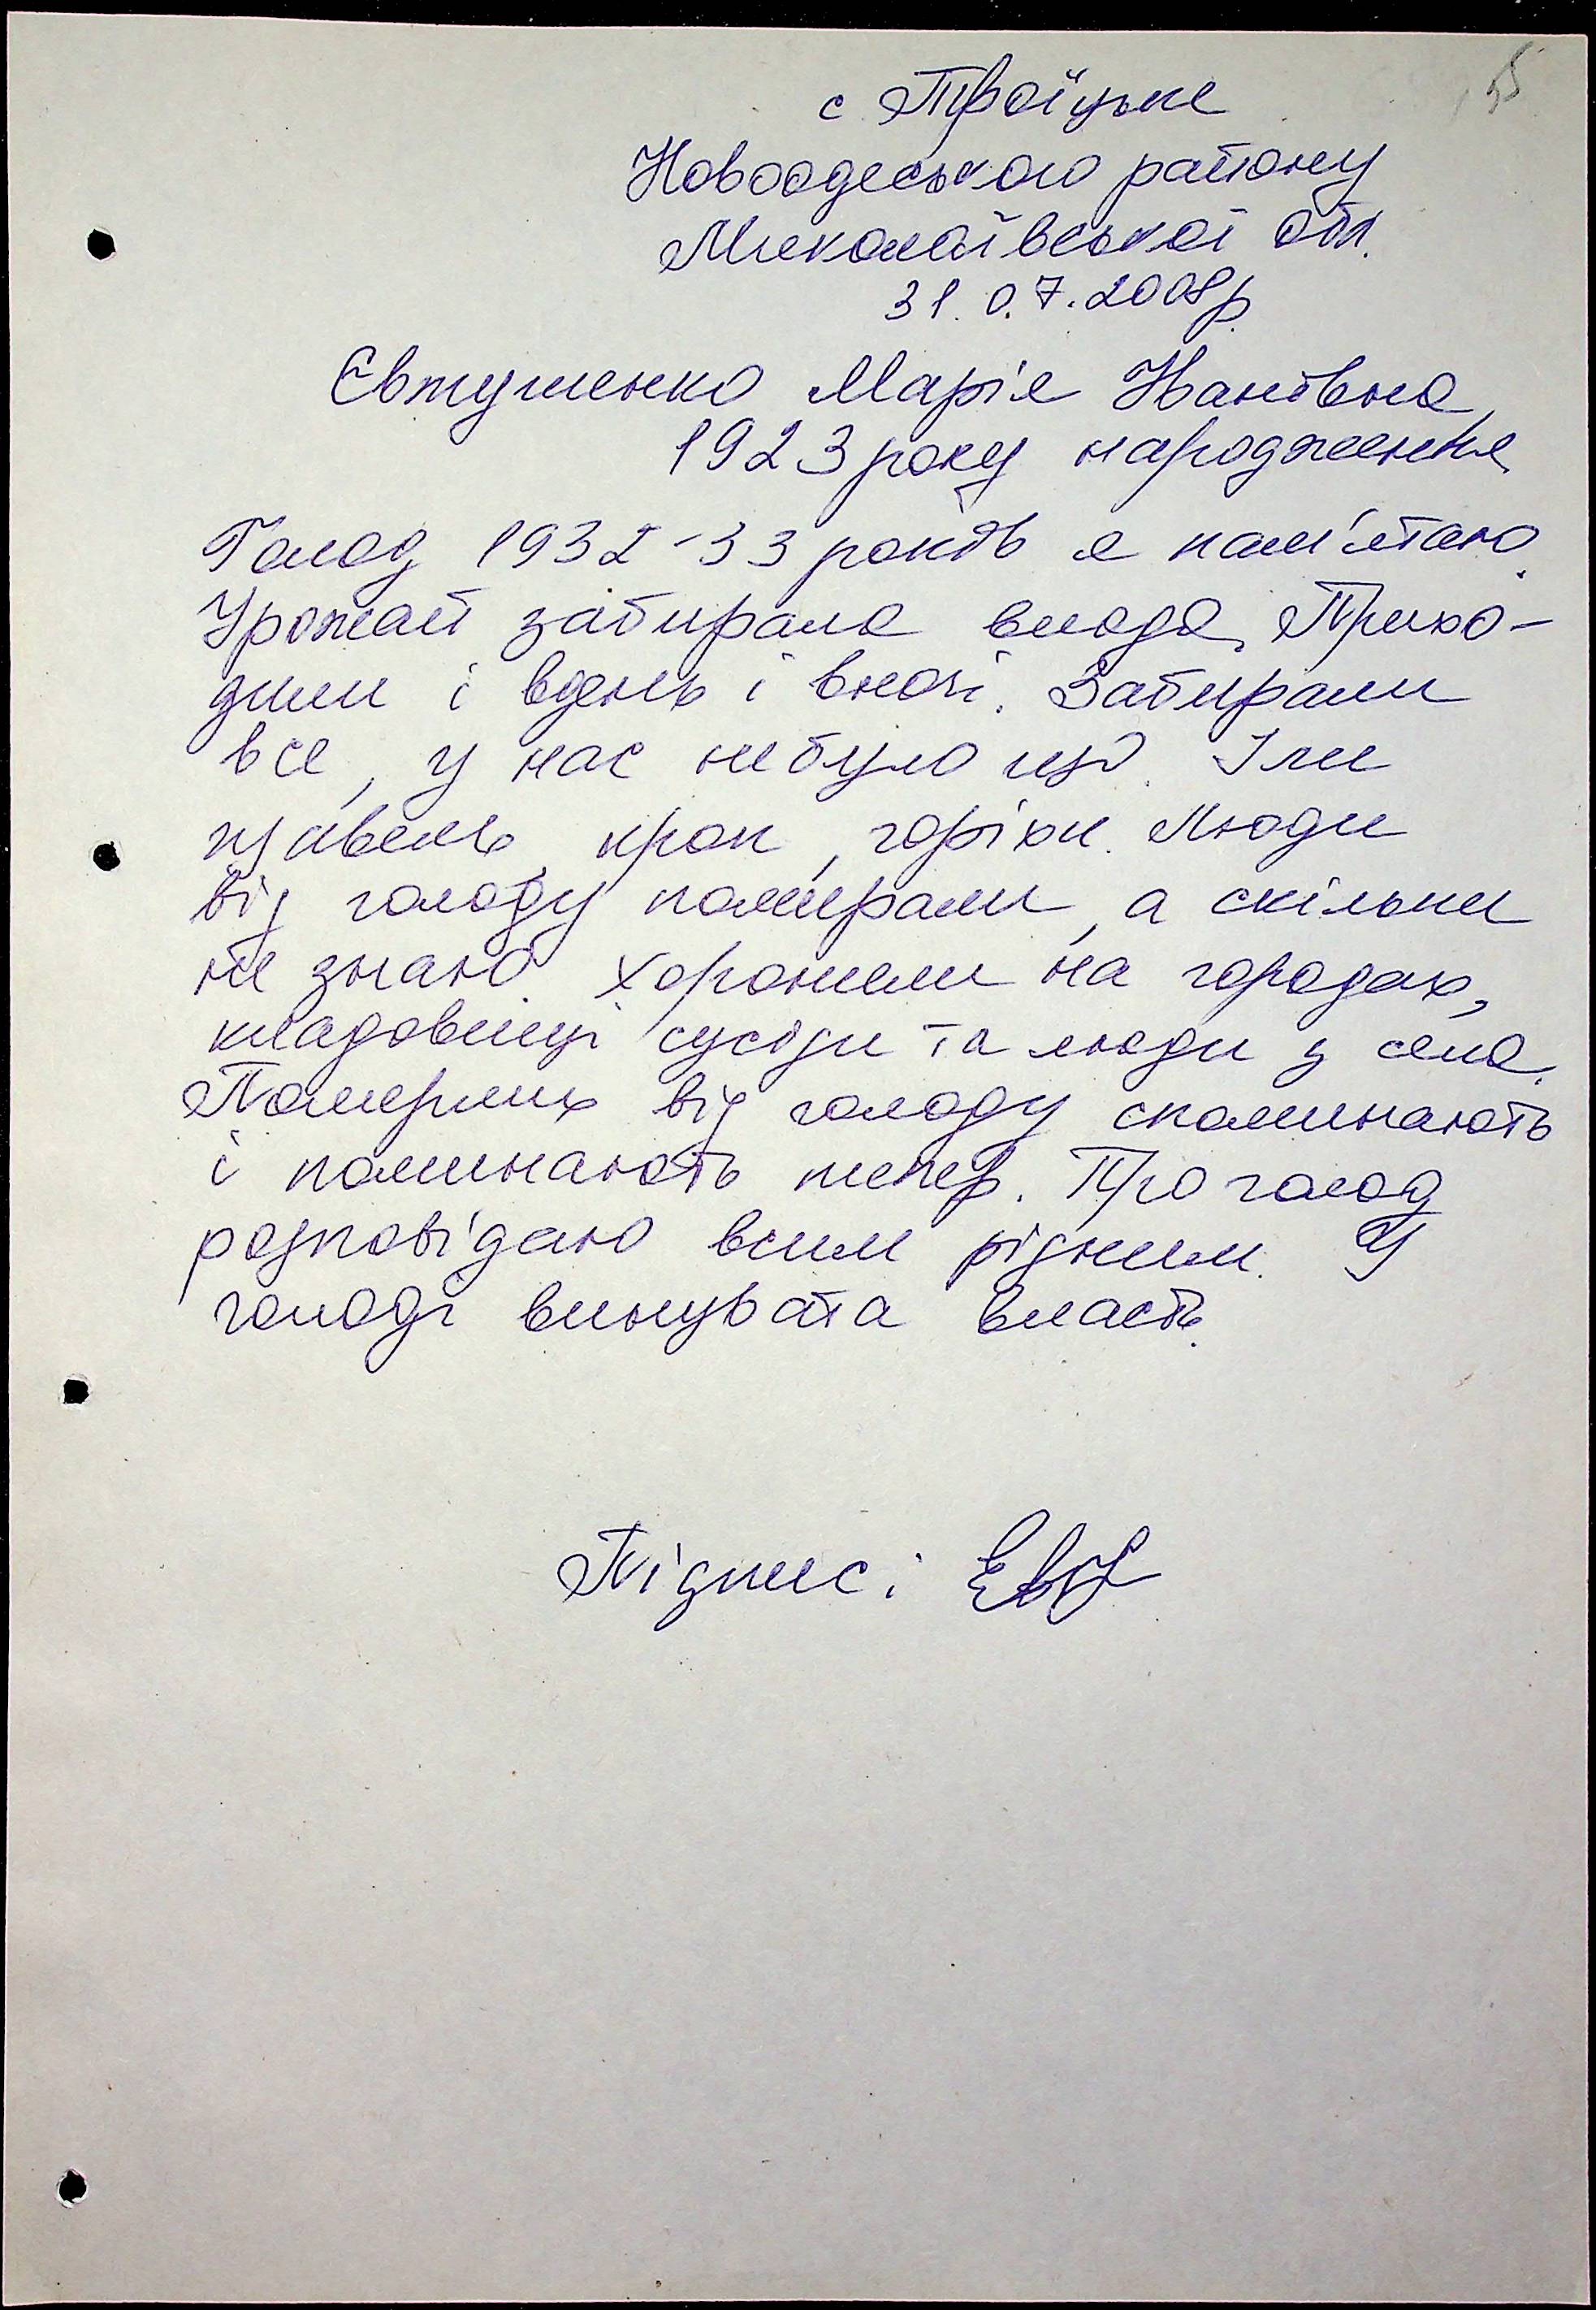 55
с. Троїцьке
Новоодеського району
Миколаївської обл.
31.0.7.2008р.
Євтушенко Марія Іванівна,
1923 року народження
Голод 1932-33 років я пам'ятаю.
Урожай забирала влада. Прихо-
дили і вдень і вночі. Забирали
все, у нас не було що. Їли
щавель, кроп, горіхи. Люди
від голоду помирали, а скільки
не знаю. Хоронили на городах,
кладовищі сусіди та люди з села.
Померлих від голоду споминають
і поминають тепер. Про голод
розповідаю всим рідним. У
голоді винувата власть.
Підпис: Евт